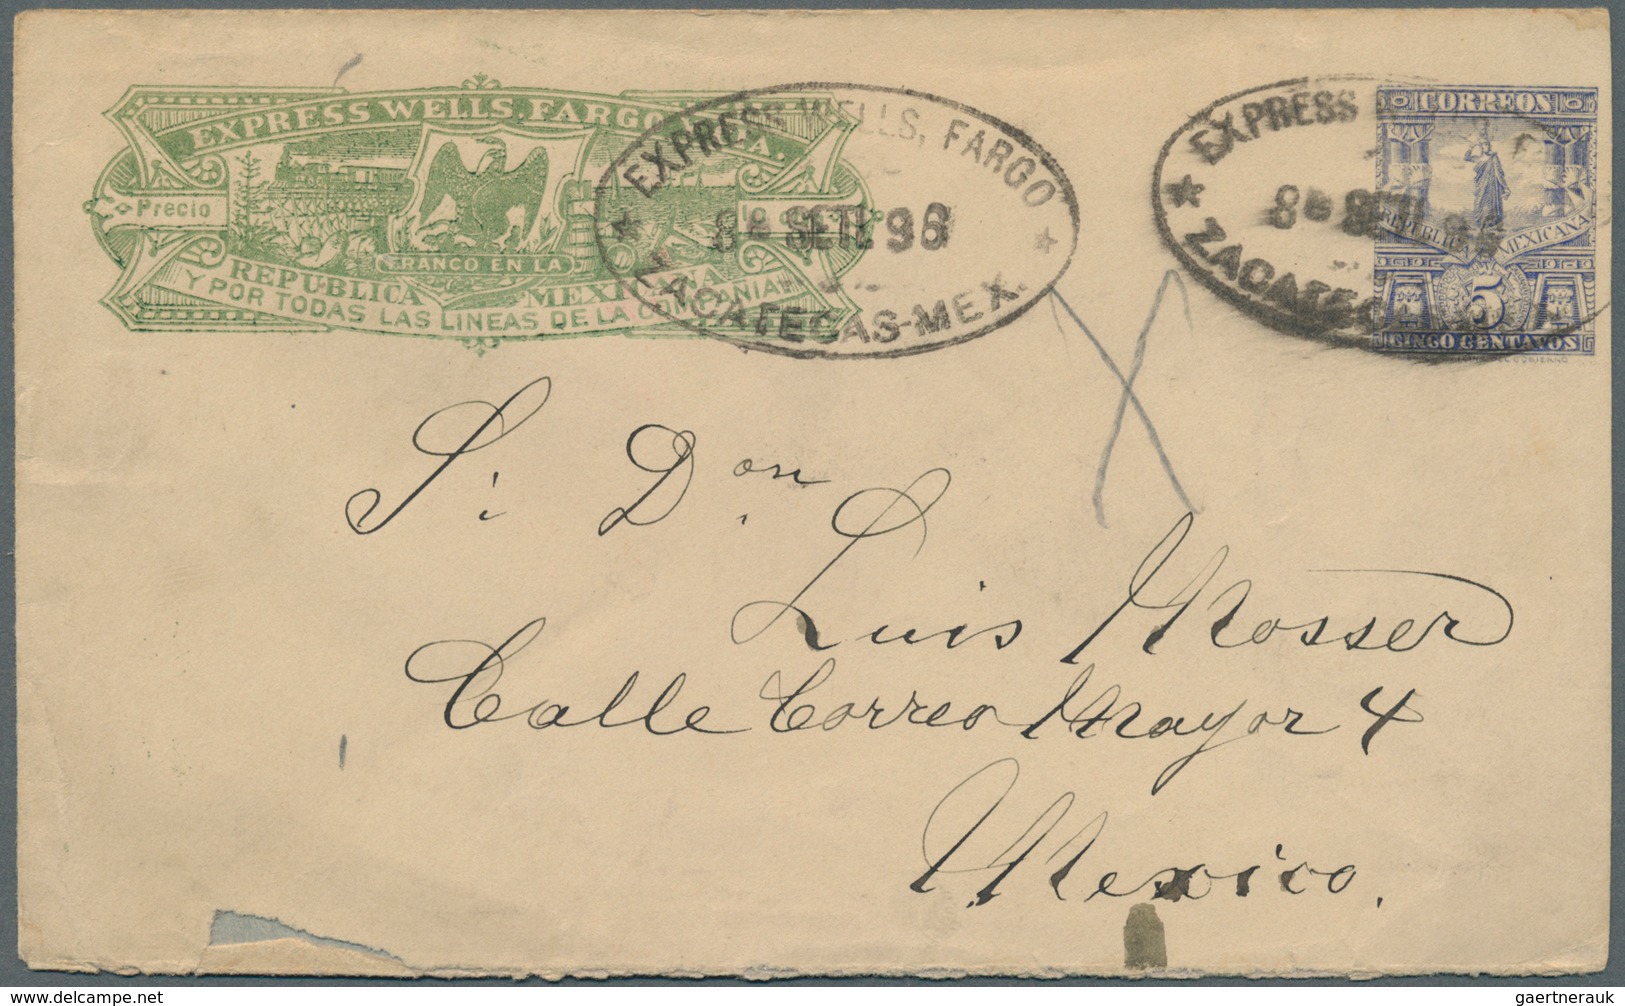 EXPRESS WELLS, FARGO
Precio
FRANCO EN LA
REPUBLICA MEXICANA
Y POR TODAS LAS LINEAS DE LA COMPAÑIA
EXPRESS WELLS, FARGO
8 SETE. 96
ZACATECAS-MEX.
EXPRESS
8 SETE. 96
ZACATECAS
CORREOS
REPUBLICA MEXICANA
5
CINCO CENTAVOS
S. Don
Luis Mosser
Calle Correo Mayor 4
Mexico.
gaertnerauk